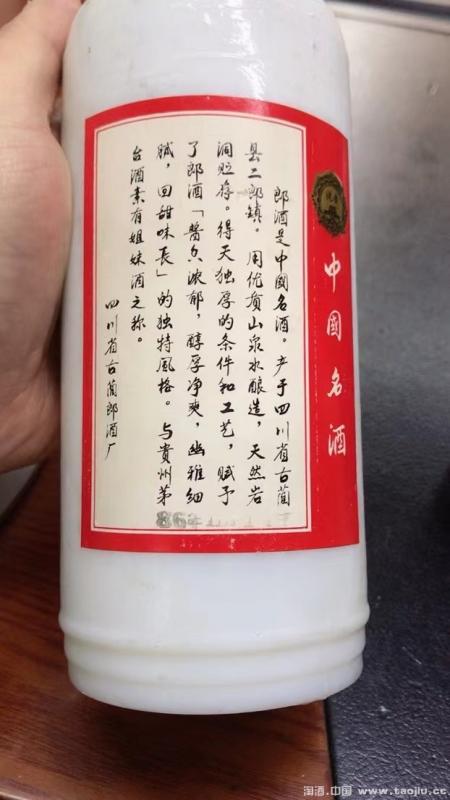 郎酒是中國名酒。产于四川省古蔺
县二郎镇。用优质山泉水酿造，天然岩
洞贮存。得天独厚的条件和工艺，赋予
了郎酒「酱香浓郁，醇厚净爽，幽雅细
腻，回甜味長」的独特風格。与貴州茅
台酒素有姐妹酒之称。
四川省古蔺郎酒厂
中國名酒
86年
淘酒.中国 www.taojiu.cc